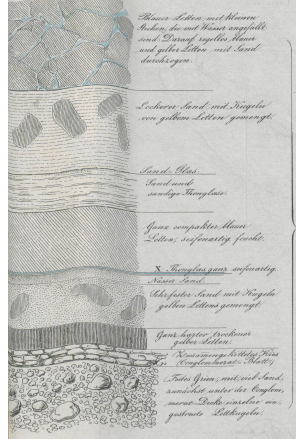 Blauer Letten mit kleinen
die mit Wasser angefüllt
sind. Darauf blauer
und gelber Letten mit Sand
durchzogen.
Lockerer Sand mit Kugeln
von gelbem Letten gemengt.
Sand-Glas.
Sand und
sandige Thonglase.
Ganz compakter blauer
Letten, feucht.
X Thonglas ganz
Nasser Sand.
Sehr fester Sand mit Kugeln
gelben Lettens gemengt.
Ganz harter trockener
gelber Letten.
Kies
(Conglomerat-Blatt)
mit viel Sand,
zunächst unter der Conglom,,
merat-Decke einzelne ein,,
Lettkugeln.